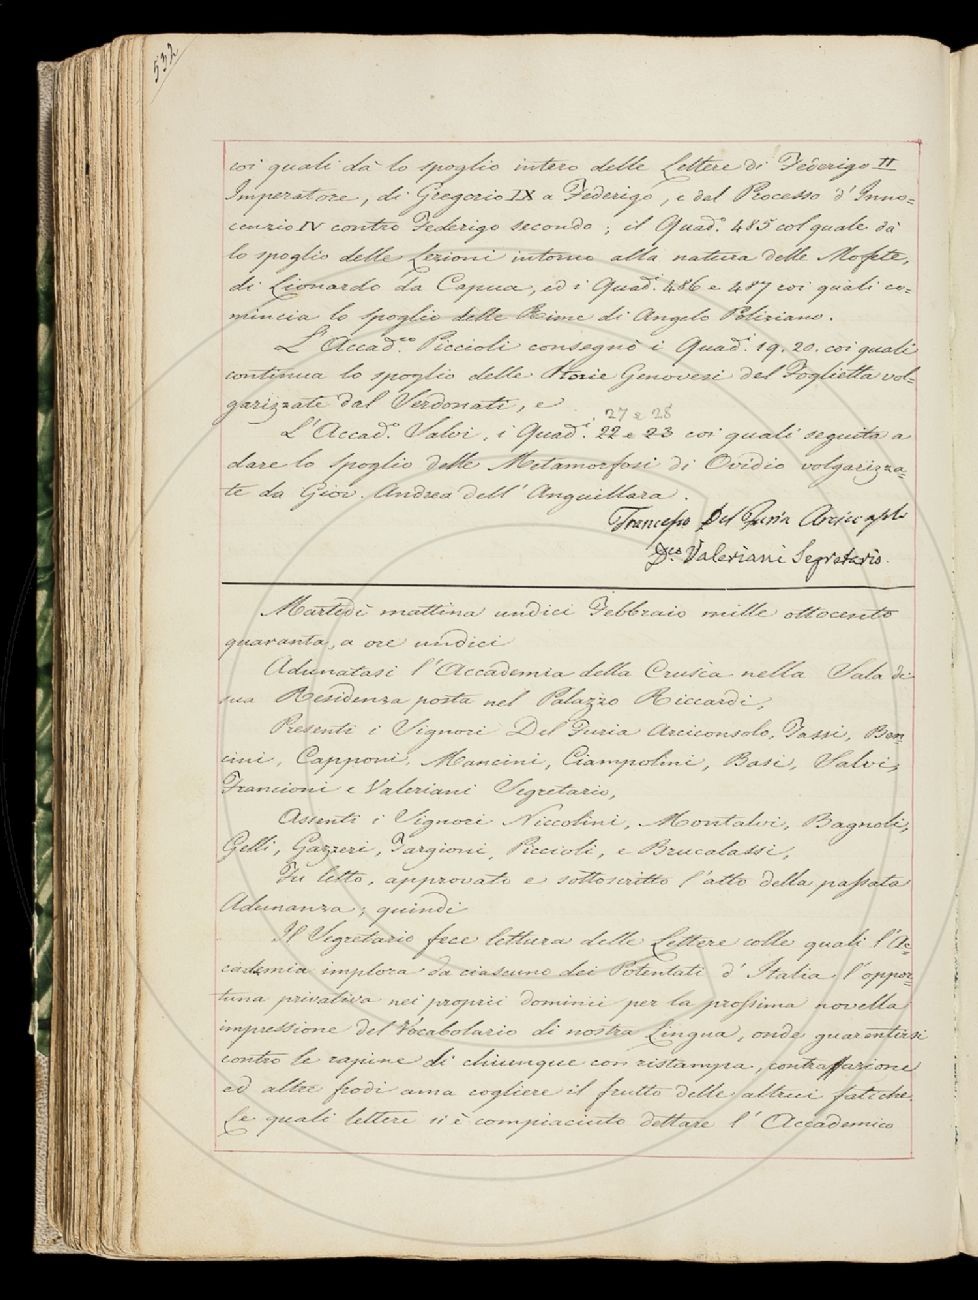 532
coi quali dà lo spoglio intero delle Lettere di Federigo II
Imperatore, di Gregorio IX a Federigo, e del Processo d'Inno=
cenzio IV contro Federigo secondo; il Quad.º 485 col quale dà
lo spoglio delle Lezioni intorno alla natura delle Mofete,
di Lionardo da Capua, ed i Quad.i 486 e 487 coi quali co=
mincia lo spoglio delle Rime di Angelo Poliziano.
L'Accad.co Piccioli consegnò i Quad.i 19. 20. coi quali
continua lo spoglio delle Storie Genovesi del Foglietta vol=
garizzate dal Serdonati, e
27 e 28
L'Accad.º Salvi, i Quad.i 22 e 23 coi quali seguita a
dare lo spoglio delle Metamorfosi di Ovidio volgarizza=
te da Giov. Andrea dell'Anguillara.
Francesco Del Furia Arciconsolo
D.co Valeriani Segretario.
Martedì mattina undici Febbraio mille ottocento
quaranta, a ore undici
Adunatasi l'Accademia della Crusca nella Sala di
sua Residenza posta nel Palazzo Riccardi,
Presenti i Signori Del Furia Arciconsolo, Tassi, Ben=
cini, Capponi, Mancini, Ciampolini, Basi, Salvi,
Francioni e Valeriani Segretario,
Assenti i Signori Niccolini, Montalvi, Bagnoli,
Gelli, Gazzeri, Targioni, Piccioli, e Brucalassi,
Fu letto, approvato e sottoscritto l'atto della passata
Adunanza; quindi
Il Segretario fece lettura delle Lettere colle quali l'Ac=
cademia implora da ciascuno dei Potentati d'Italia l'oppor=
tuna privativa nei proprii dominii per la prossima novella
impressione del Vocabolario di nostra Lingua, onde guarentirsi
contro le rapine di chiunque con ristampa, contraffazione
ed altre frodi ama cogliere il frutto delle altrui fatiche.
Le quali lettere si è compiaciuto dettare l'Accademico